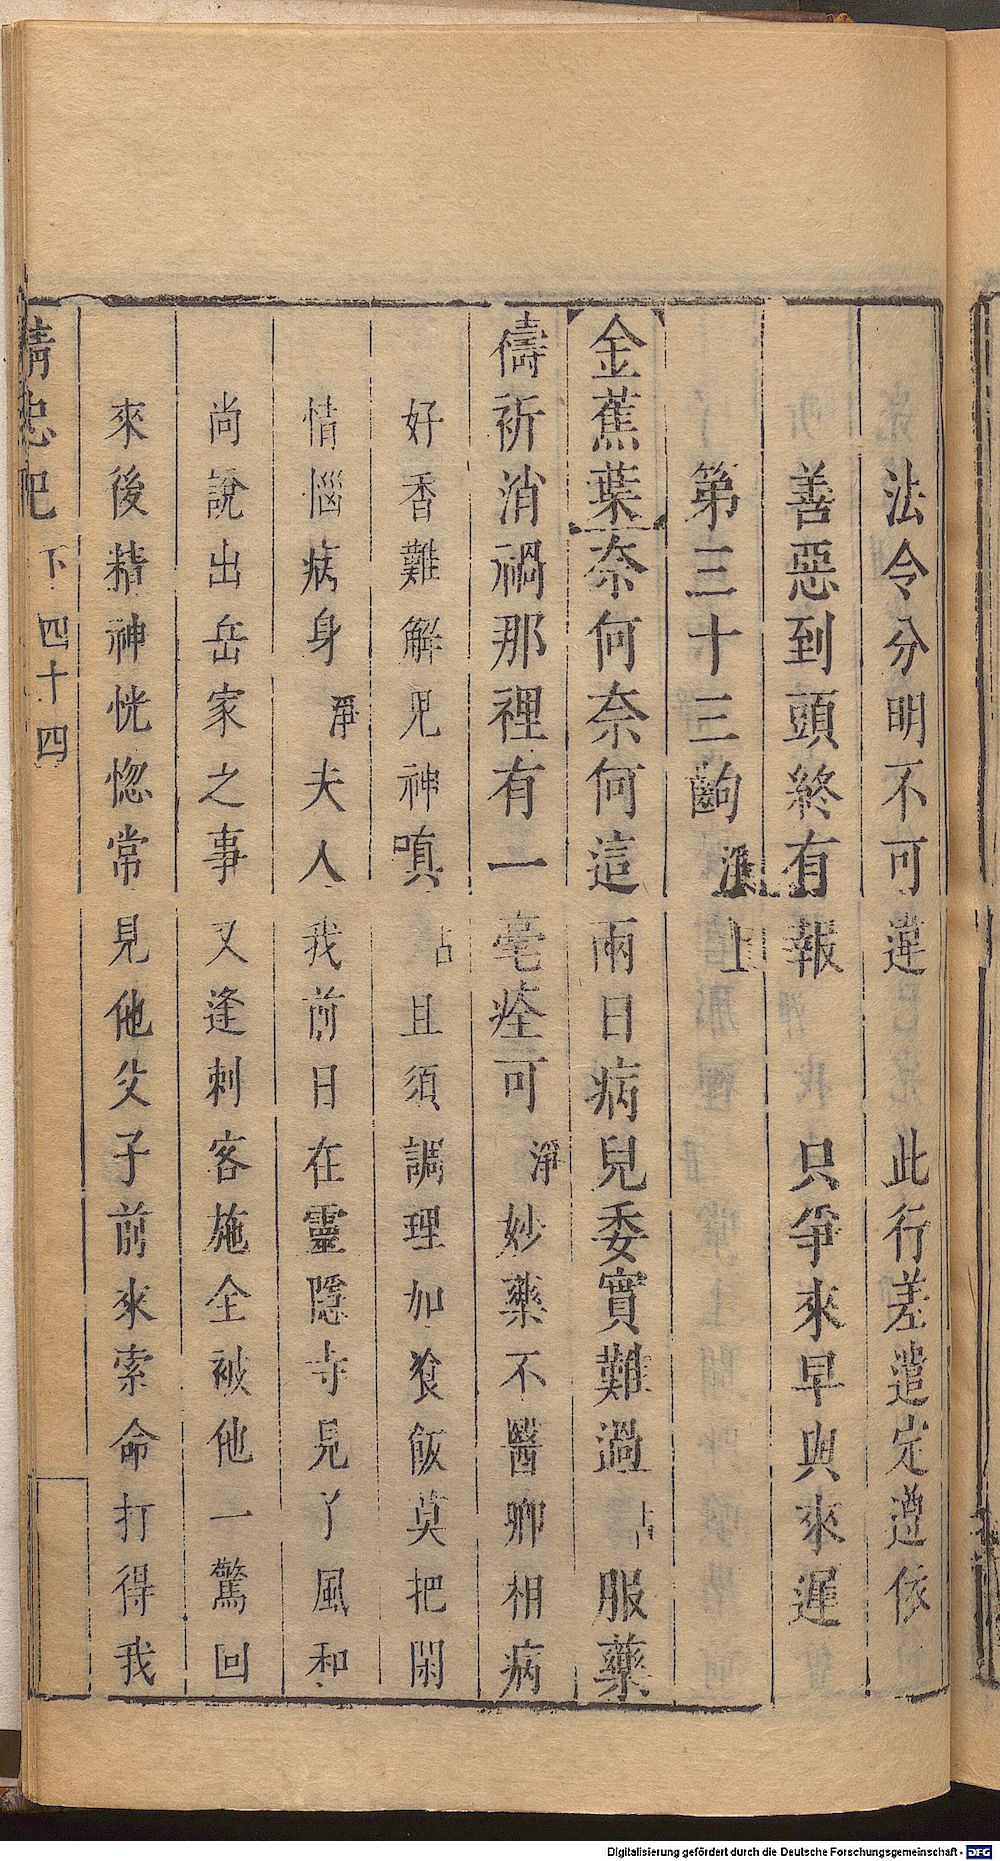 法令分明不可違　此行差遣定遵依
善惡到頭終有報　只爭來早與來遲
第三十三齣　淨上
金蕉葉奈何奈何這兩日病兒委實難過占服藥
儔祈消禍那裡有一毫痊可淨妙藥不醫卿相病
好香難解見神嗔占且須調理加飡飯莫把閑
情惱病身淨夫人我前日在靈隱寺見丫風和
尚說出岳家之事又逢刺客施全被他一驚回
來後精神恍惚常見他父子前來索命打得我
精忠記　下　四十四
Digitalisierung gefördert durch die Deutsche Forschungsgemeinschaft - DFG